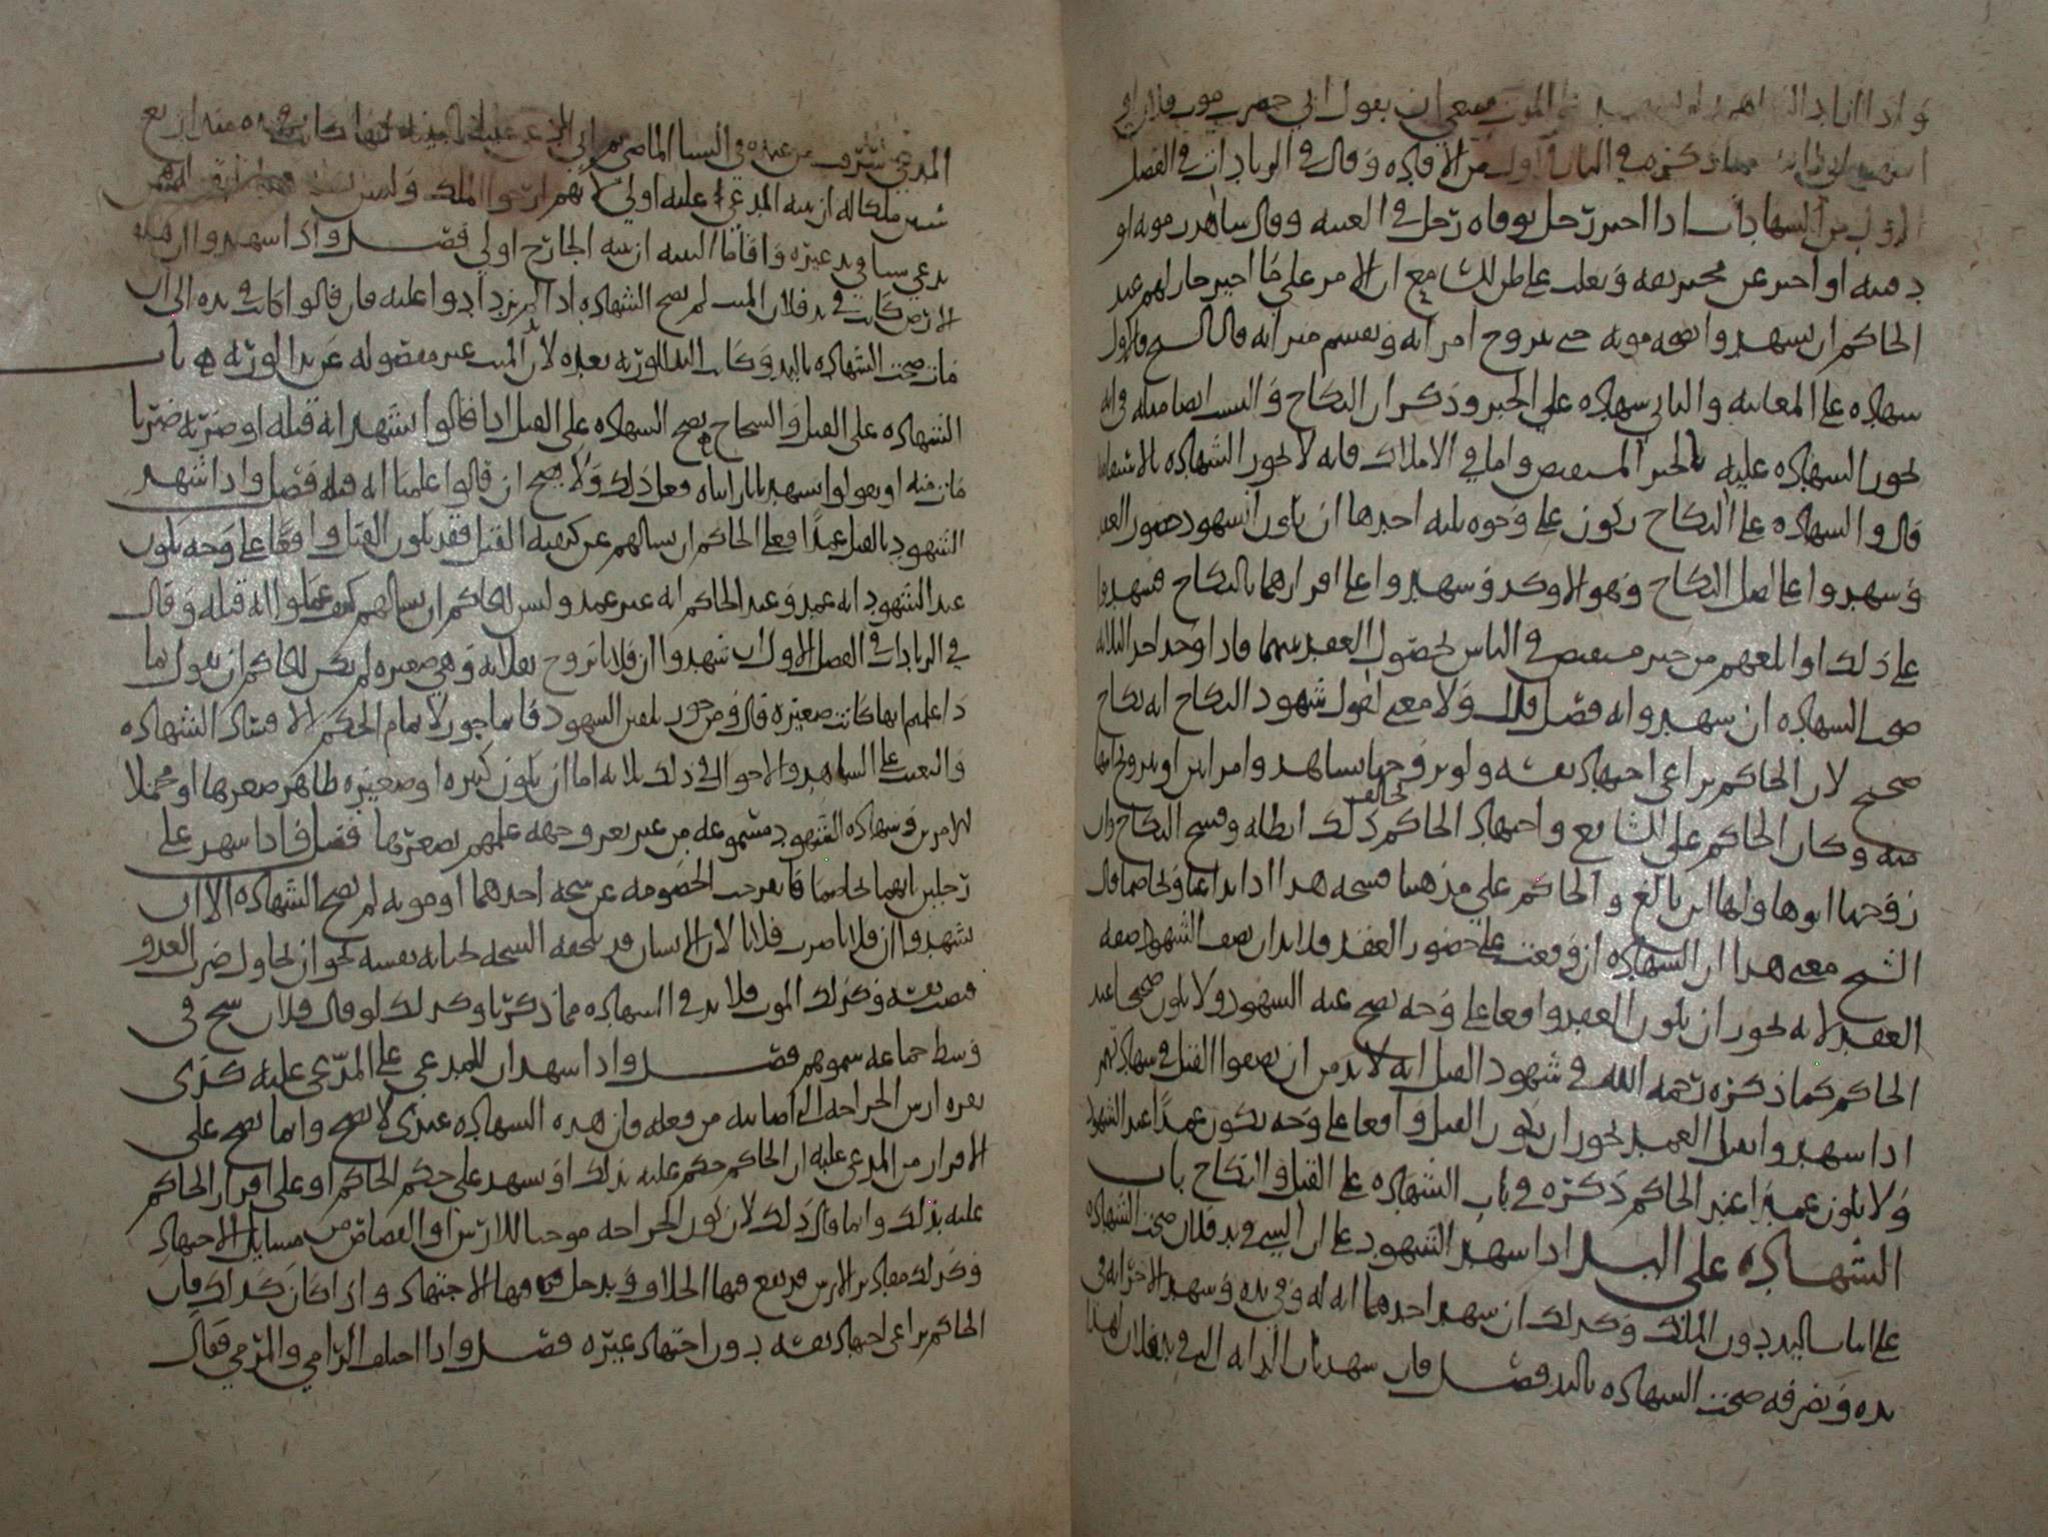 واذا اراد الشاهد ان يشهد على الموت فينبغي ان يقول اني حضرت موت فلان او
اشهد ان مما ذكره في الباب الاول من الافادة وقال في الزيادات في الفصل
الاول من الشهادات اذا اخبر رجل بوفاة رجل في الغيبة وقال شاهدت موته او
دفنه او اخبر عن مخبر ثقة ويغلب على ظن السامع ان الامر على ما اخبر جاز لهم عند
الحاكم ان يشهدوا بصحة موته حتى تزوج امراته ويقسم ميراثه قال الشيخ فالاول
شهادة على المعاينة والثاني شهادة على الخبر وذكر ان النكاح والنسب ايضا مثله في انه
تجوز الشهادة عليه بالخبر المستفيض واما في الاملاك فانه لا تجوز الشهادة بالاستفاضة
قال والشهادة على النكاح تكون على وجوه ثلثة احدها ان يكون الشهود حضور العقد
وشهدوا على اصل النكاح وهو الاوكد وشهدوا على اقرارهما بالنكاح فشهدوا
على ذلك او بلغهم من خبر مستفيض في الناس بحصول العقد بينهما فاذا وجد احد الثلاثة
صحت الشهادة ان شهدوا به فصل قال ولا معنى لقول شهود النكاح انه نكاح
صحيح لان الحاكم يراعي اجتهاد نفسه ولو تزوجها بشاهد وامراتين او تزوج ابنتها
منه وكان الحاكم على الشايع واجتهاد الحاكم يخالف ذلك ابطله وفسخ النكاح وان
زوجها ابوها ولها ابن بالغ والحاكم على مذهبنا فسخه هذا اذا تداعيا وتخاصما قال
الشيخ معنى هذا ان الشهادة ان وقعت على حضور العقد فلا بد ان يصف الشهود صفة
العقد لانه يجوز ان يكون العقد واقعا على وجه يصح عند الشهود ولا يكون صحيحا عند
الحاكم كما ذكره رحمه الله في شهود القتل انه لا بد من ان يصفوا القتل في شهادتهم
اذا شهدوا بقتل العمد لجواز ان يكون القتل واقعا على وجه يكون عمدا عند الشهود
ولا يكون عمدا عند الحاكم ذكره في باب الشهادة على القتل والنكاح باب
الشهادة على اليد اذا شهد الشهود على ان الشيء في يد فلان صحت الشهادة
على اثبات اليد دون الملك وكذلك ان شهد احدهما انه له وفي يده وشهد الاخر انه في
يده وتصرفه صحت الشهادة باليد فصل فان شهد بان الدابة التي في يد فلان لهذا
المدعي سرقت من عنده في السنة الماضية ثم اتى المدعى عليه بالبينة انها كانت في يده منذ اربع
سنين ملكا له ان بينة المدعى عليه اولى لانهم اثبتوا الملك وليس
يدعي شيا في يد غيره واقاما البينة ان بينة الخارج اولى فصل واذا شهدوا ان هذه
الارض كانت في يد فلان الميت لم تصح الشهادة اذا لم يزيدوا عليه فان قالوا كانت في يده الى ان
مات صحت الشهادة باليد وكانت اليد لورثته بعده لان يد الميت غير مفصولة عن يد الورثة باب
الشهادة على القتل والشجاج تصح الشهادة على القتل اذا قالوا نشهد انه قتله او ضربه ضربا
مات منه او يقولوا نشهد بانا رايناه فعل ذلك ولا يصح ان قالوا علمنا انه قتله فصل واذا شهد
الشهود بالقتل عمدا فعلى الحاكم ان يسالهم عن كيفية القتل فقد يكون القتل واقعا على وجه يكون
عند الشهود انه عمد وعند الحاكم انه غير عمد وليس للحاكم ان يسالهم كيف علموا انه قتله وقال
في الزيادات في الفصل الاول ان شهدوا ان فلانا تزوج بفلانة وهي صغيرة لم يكن للحاكم ان يقول بما
ذا علمتم انها كانت صغيرة قال ومن جوز تلقين الشهود فانما يجوز لاتمام الحكم لا لافساد الشهادة
والتعنت على الشاهد والاحوال في ذلك ثلاثة اما ان يكون كبيرة او صغيرة ظاهر صغرها او محتملا
للامرين وشهادة الشهود مسموعة من غير تعرف جهة علمهم بصغرها فصل فاذا شهد على
رجلين انهما تخاصما فانفرجت الخصومة عن شجة احدهما او موته لم تصح الشهادة الا ان
يشهدوا ان فلانا ضرب فلانا لان الانسان قد تلحقه الشجة بجناية نفسه نحو ان يحاول ضرب العدو
فيصيب نفسه وكذلك الموت فلا بد في الشهادة مما ذكرنا وكذلك لو قال فلان شج في
وسط جماعة سموهم فصل واذا شهد ان للمدعي على المدعى عليه كذى
بقرة ارش الجراحة التي اصابته من فعله فان هذه الشهادة عندي لا تصح وانما تصح على
الاقرار من المدعى عليه او ان الحاكم حكم عليه بذلك او يشهد على حكم الحاكم او على اقرار الحاكم
عليه بذلك وانما قال ذلك لان كون الجراحة موجبا للارش او القصاص من مسايل الاجتهاد
وكذلك مقادير الارش قد يقع فيها الخلاف ويدخل فيها الاجتهاد واذا كان كذلك فان
الحاكم يراعي اجتهاد نفسه دون اجتهاد غيره فصل واذا اختلف الرامي والمرمي فقال